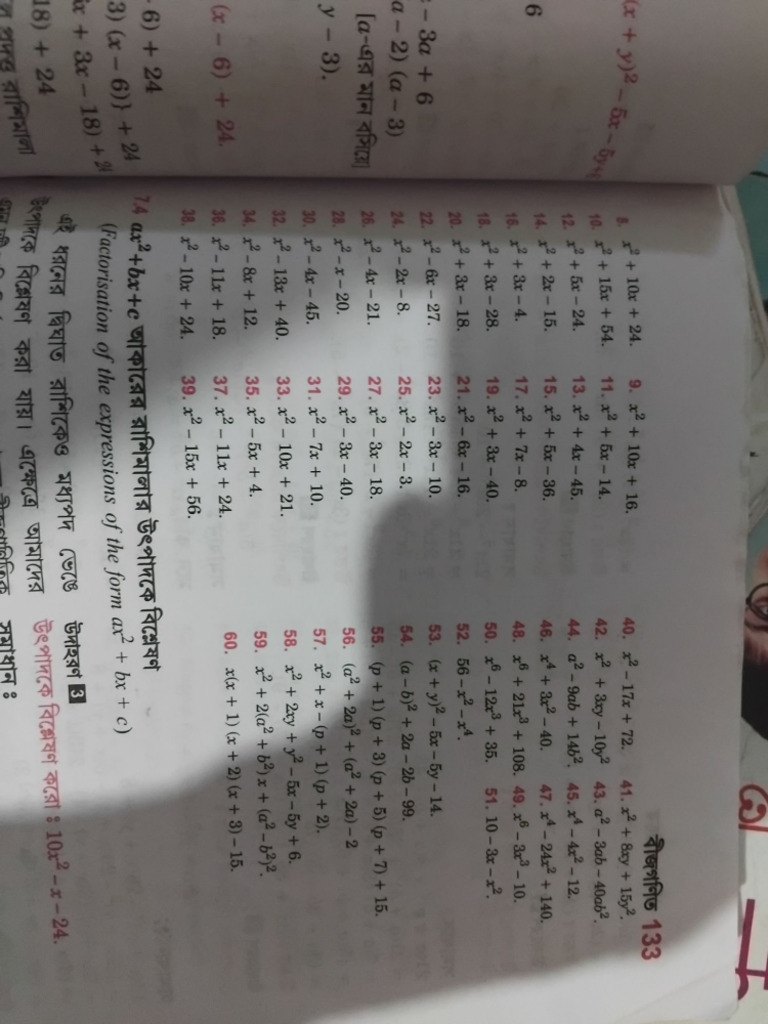 (x + y)² – 5x – 5y +
6
– 3a + 6
a – 2) (a – 3)
[a-এর মান বসিয়ে]
y – 3).
(x – 6) + 24.
– 6) + 24
3) (x – 6)} + 24
x + 3x – 18) + 24
18) + 24
প্রদত্ত রাশিমালা
বীজগণিত 133
8. x² + 10x + 24. 9. x² + 10x + 16.
10. x² + 15x + 54. 11. x² + 5x – 14.
12. x² + 5x – 24. 13. x² + 4x – 45.
14. x² + 2x – 15. 15. x² + 5x – 36.
16. x² + 3x – 4. 17. x² + 7x – 8.
18. x² + 3x – 28. 19. x² + 3x – 40.
20. x² + 3x – 18. 21. x² – 6x – 16.
22. x² – 6x – 27. 23. x² – 3x – 10.
24. x² – 2x – 8. 25. x² – 2x – 3.
26. x² – 4x – 21. 27. x² – 3x – 18.
28. x² – x – 20. 29. x² – 3x – 40.
30. x² – 4x – 45. 31. x² – 7x + 10.
32. x² – 13x + 40. 33. x² – 10x + 21.
34. x² – 8x + 12. 35. x² – 5x + 4.
36. x² – 11x + 18. 37. x² – 11x + 24.
38. x² – 10x + 24. 39. x² – 15x + 56.
40. x² – 17x + 72. 41. x² + 8xy + 15y².
42. x² + 3xy – 10y² 43. a² – 3ab – 40ab².
44. a² – 9ab + 14b². 45. x⁴ – 4x² – 12.
46. x⁴ + 3x² – 40. 47. x⁴ – 24x² + 140.
48. x⁶ + 21x³ + 108. 49. x⁶ – 3x³ – 10.
50. x⁶ – 12x³ + 35. 51. 10 – 3x – x².
52. 56 – x² – x⁴.
53. (x + y)² – 5x – 5y – 14.
54. (a – b)² + 2a – 2b – 99.
55. (p + 1) (p + 3) (p + 5) (p + 7) + 15.
56. (a² + 2a)² + (a² + 2a) – 2
57. x² + x – (p + 1) (p + 2).
58. x² + 2xy + y² – 5x – 5y + 6.
59. x² + 2(a² + b²) x + (a² – b²)².
60. x(x + 1) (x + 2) (x + 3) – 15.
7.4 ax² + bx + c আকারের রাশিমালার উৎপাদকে বিশ্লেষণ
(Factorisation of the expressions of the form ax² + bx + c)
এই ধরনের দ্বিঘাত রাশিকেও মধ্যপদ ভেঙে
উৎপাদকে বিশ্লেষণ করা যায়। এক্ষেত্রে আমাদের
উদাহরণ 3
উৎপাদকে বিশ্লেষণ করো : 10x² – x – 24.
সমাধান :